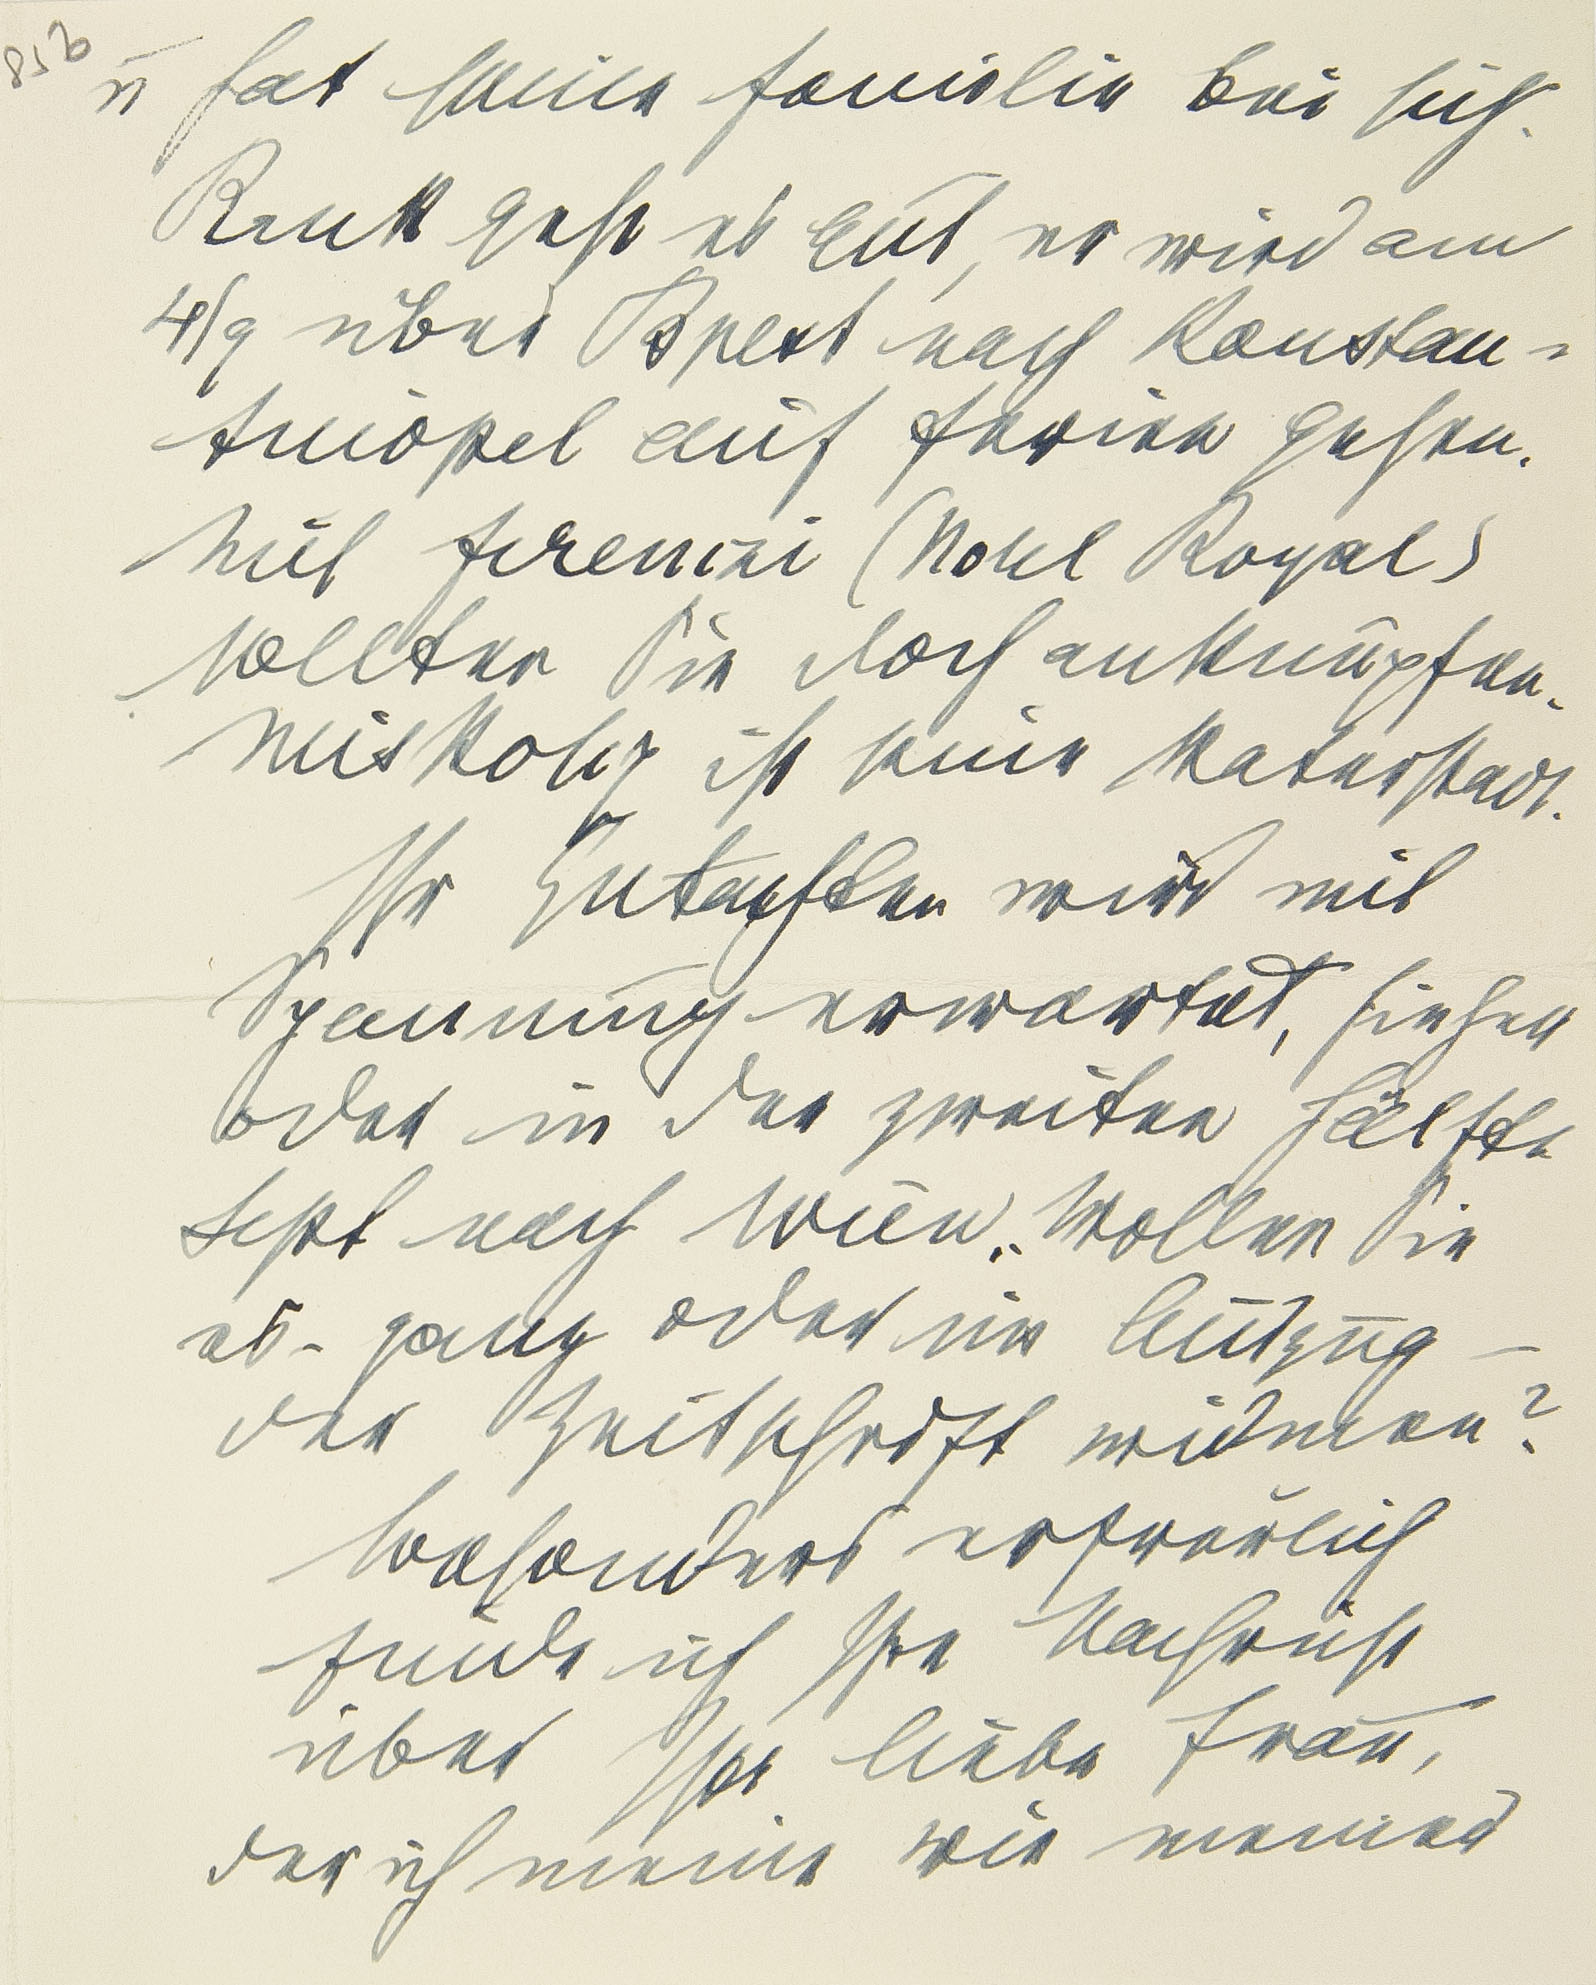 856
u hat seine Familie bei sich.
Rank geht es gut, er wird am
4/9 über Bpest nach Konstan-
tinopel auf Ferien gehen.
Mit Jeremini (Hotel Royal)
sollten Sie doch anknüpfen.
Miskolcz ist seine Vaterstadt.
Ihr Gutachten wird mit
Spannung erwartet, hieher
oder in der zweiten Hälfte
Sept nach Wien. Wollen Sie
es - ganz oder im Auszug -
der Zeitschrift widmen?
Besonders erfreulich
finde ich Ihre Nachricht
über Ihre liebe Frau,
der ich meine wie meiner